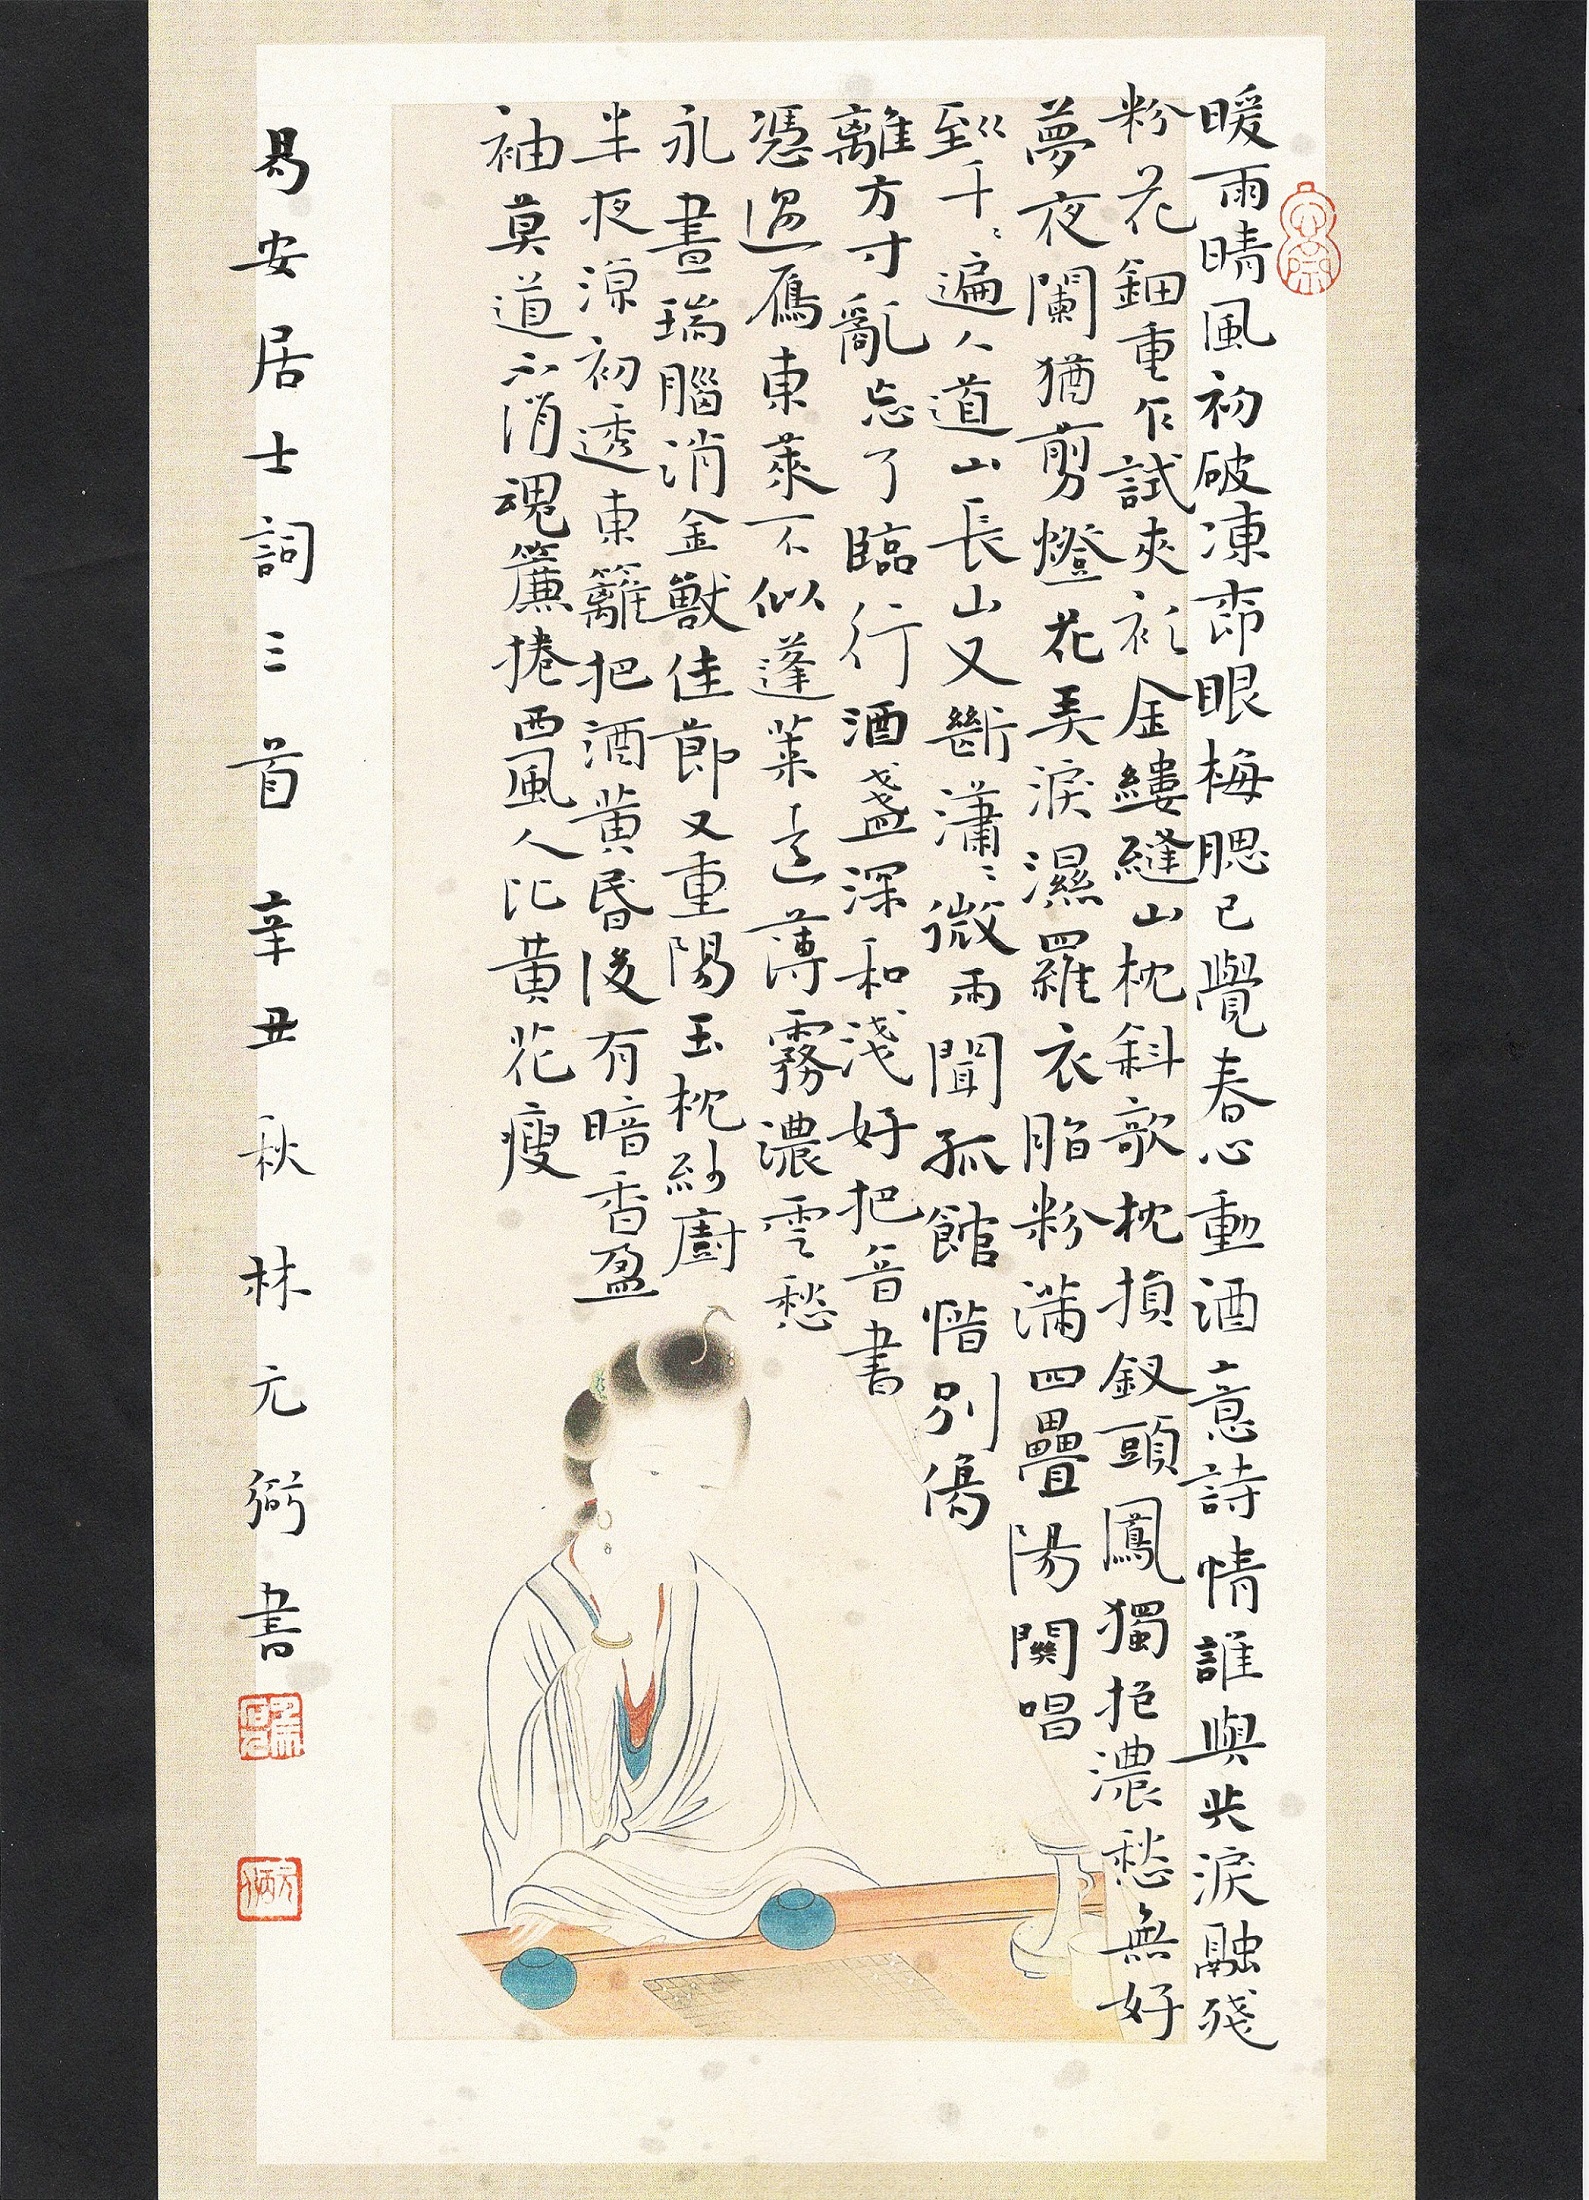 暖雨晴風初破凍柳眼梅腮已覺春心動酒意詩情誰與共淚融殘
粉花鈿重乍試夾衫金縷縫山枕斜欹枕損釵頭鳳獨抱濃愁無好
夢夜闌猶剪燈花弄淚濕羅衣脂粉滿四疊陽關唱
到千〻遍人道山長山又斷瀟〻微雨聞孤館惜別傷
離方寸亂忘了臨行酒盞深和淺好把音書
憑過雁東萊不似蓬萊遠薄霧濃雲愁
永晝瑞腦消金獸佳節又重陽玉枕紗廚
半夜涼初透東籬把酒黃昏後有暗香盈
袖莫道不消魂簾捲西風人比黃花瘦
易安居士詞三首辛丑秋林元書